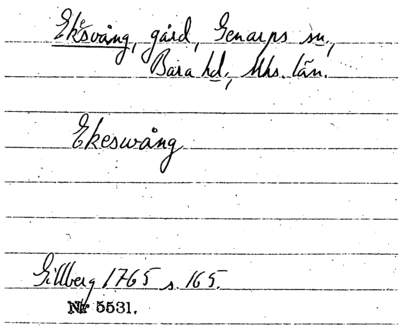 Ekesvång, gård, Genarps sn.,
Bara hd., Mhs. län.
Ekeswång
Gillberg 1765 s. 165.
Nr 5531.